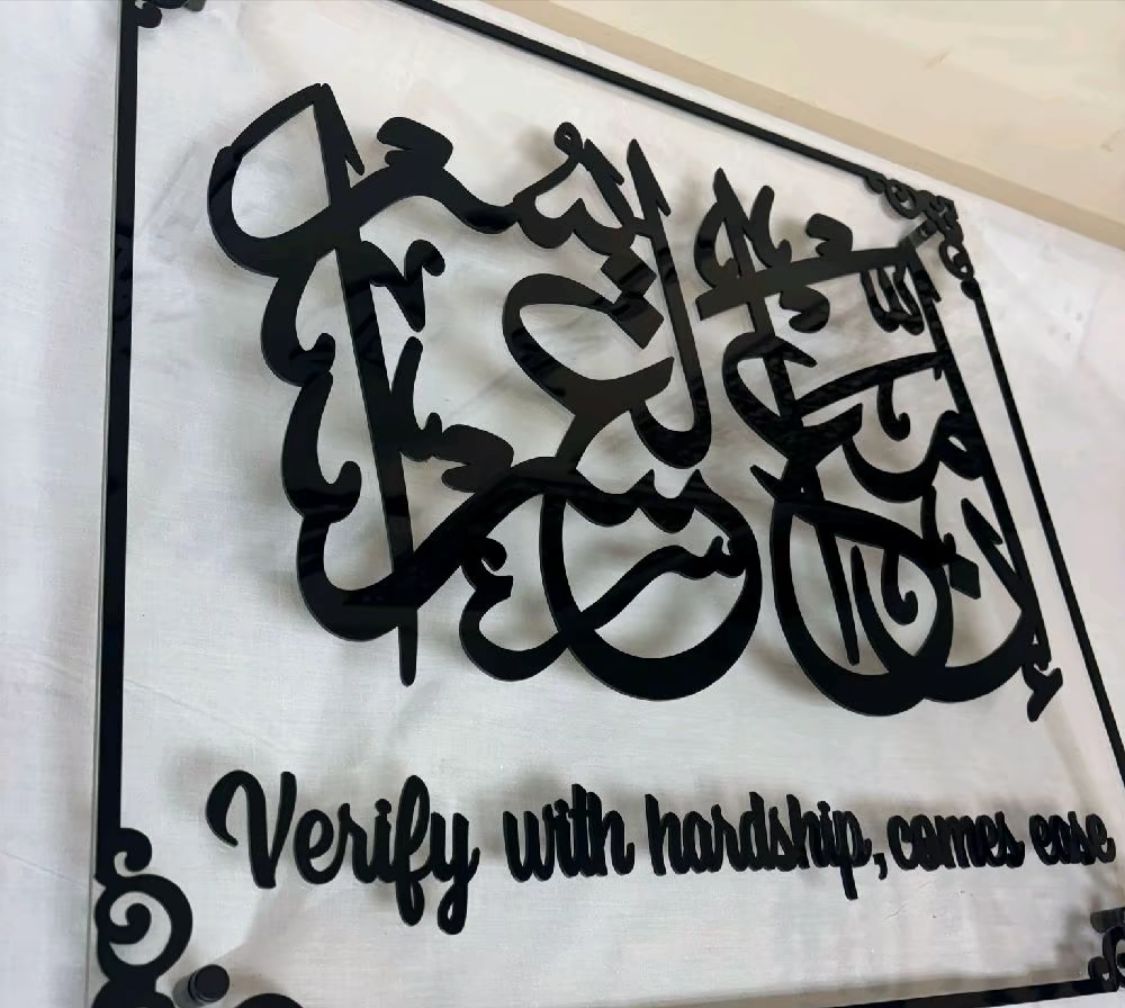 إن مع العسر يسرا
Verify with hardship, comes ease